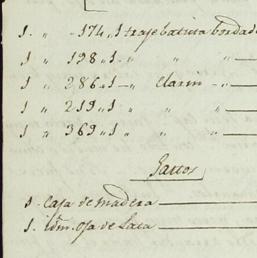 1. „ „ 174 „ 1 traje batista bordado
1. „ „ 198 „ 1 „ „ „
1. „ „ 286 „ 1 „ clarin „
1. „ „ 219 „ 1 „ „ „
1. „ „ 369 „ 1 „ „ „
Gastos
1. Caja de madera
1. idm. oja de Lata